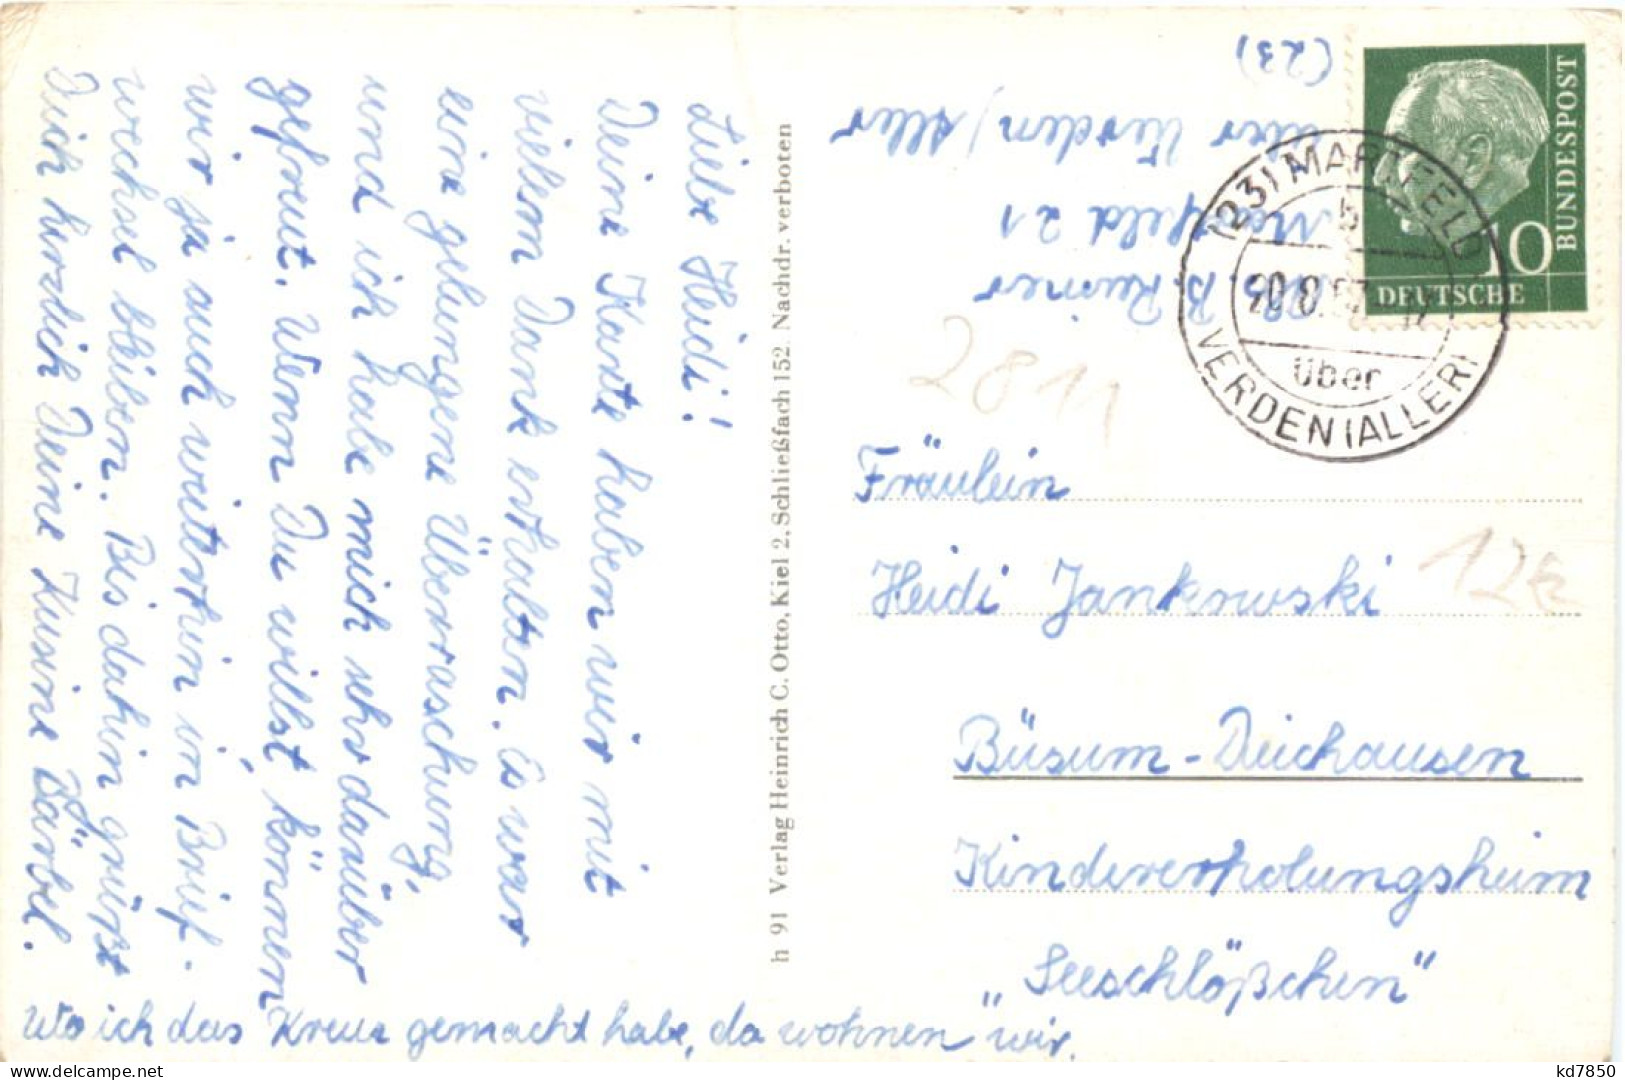 Liebe Heidi!
Deine Karte haben wir mit
vielem Dank erhalten. Es war
eine gelungene Überraschung,
und ich habe mich sehr darüber
gefreut. Wenn Du willst, können
wir ja auch weiterhin in Brief-
wechsel bleiben. Bis dahin grüßt
Dich herzlich Deine Kusine Bärbel.
Wo ich das Kreuz gemacht habe, da wohnen wir.
h 91 Verlag Heinrich C. Otto, Kiel 2. Schließfach 152. Nachdr. verboten
Martfeld 21
über Verden/Aller
(23)
DEUTSCHE
BUNDESPOST
10
(23) MARTFELD
b
über
VERDEN (ALLER)
2811
Fräulein
Heidi Jankowski
12€
Büsum-Deichausen
Kindererholungsheim
„Seeschlößchen"
kd7850